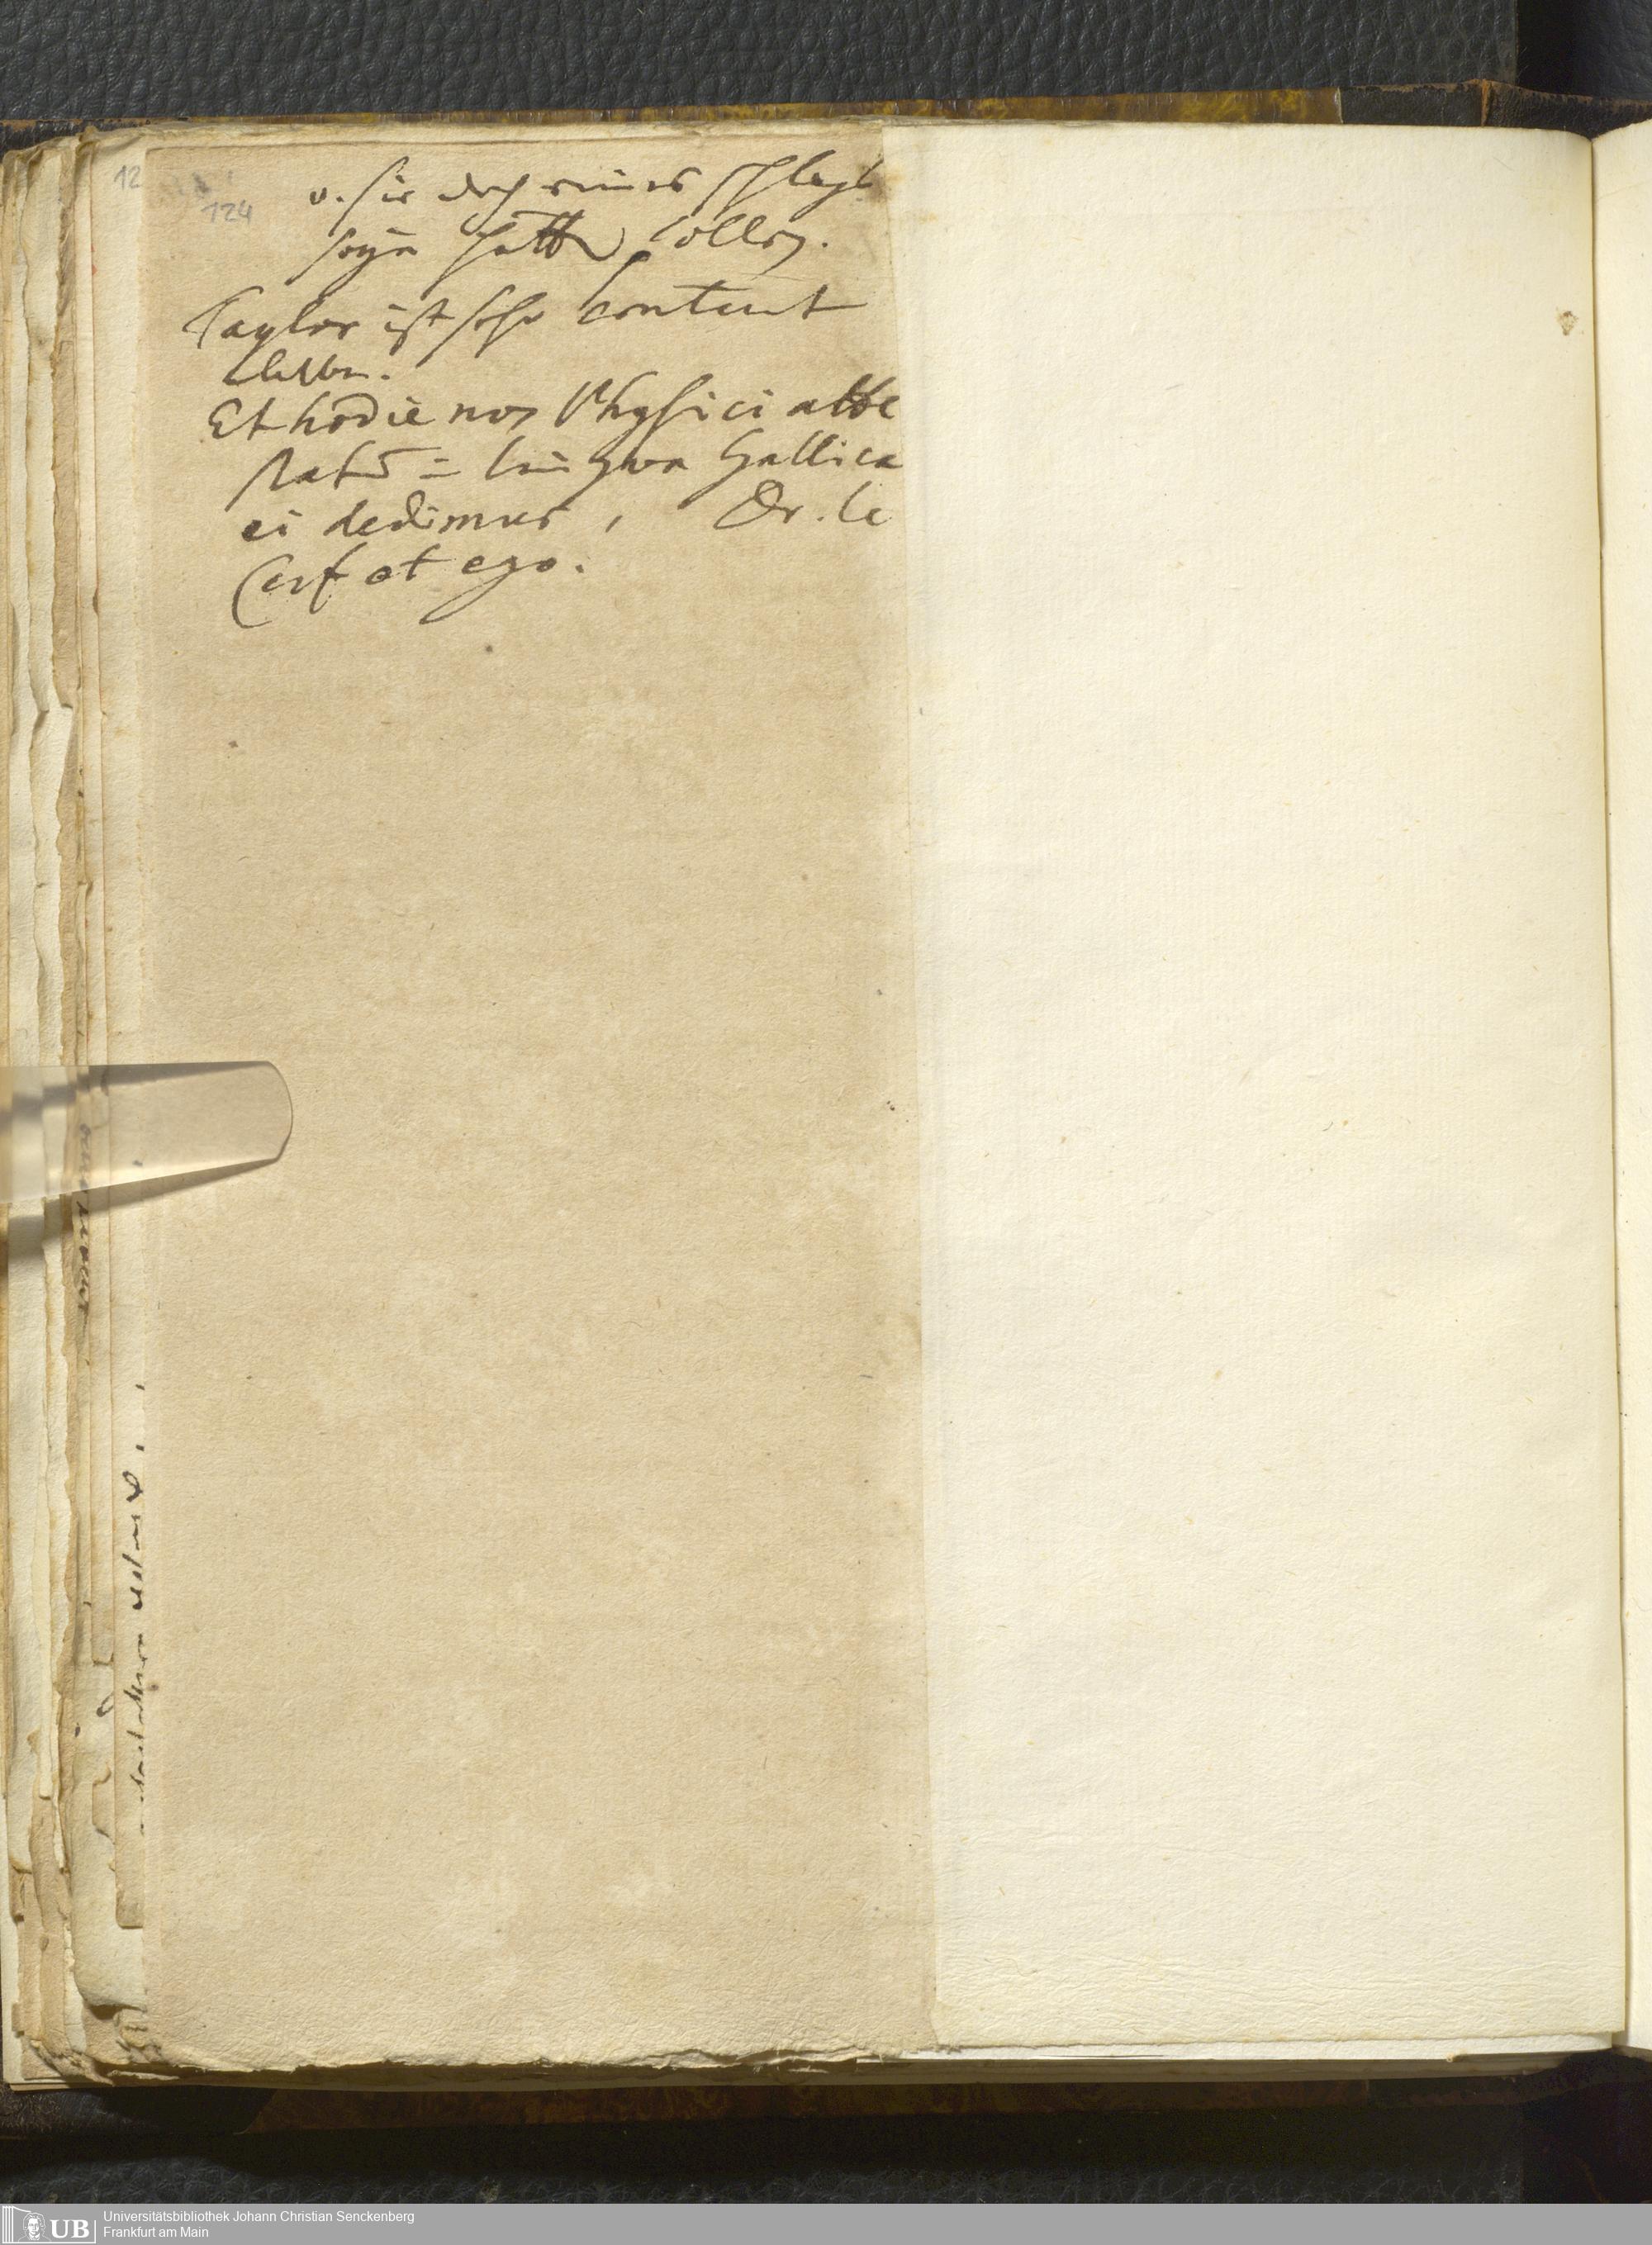 124
v. sie doch eines schlags
seyn hatte sollen.
Taylor ist sehr content
Et hodie nos Physici atte
statū in lingua Gallica
ei dedimus, Dr. le
Cerf et ego.
Universitätsbibliothek Johann Christian Senckenberg
Frankfurt am Main
UB